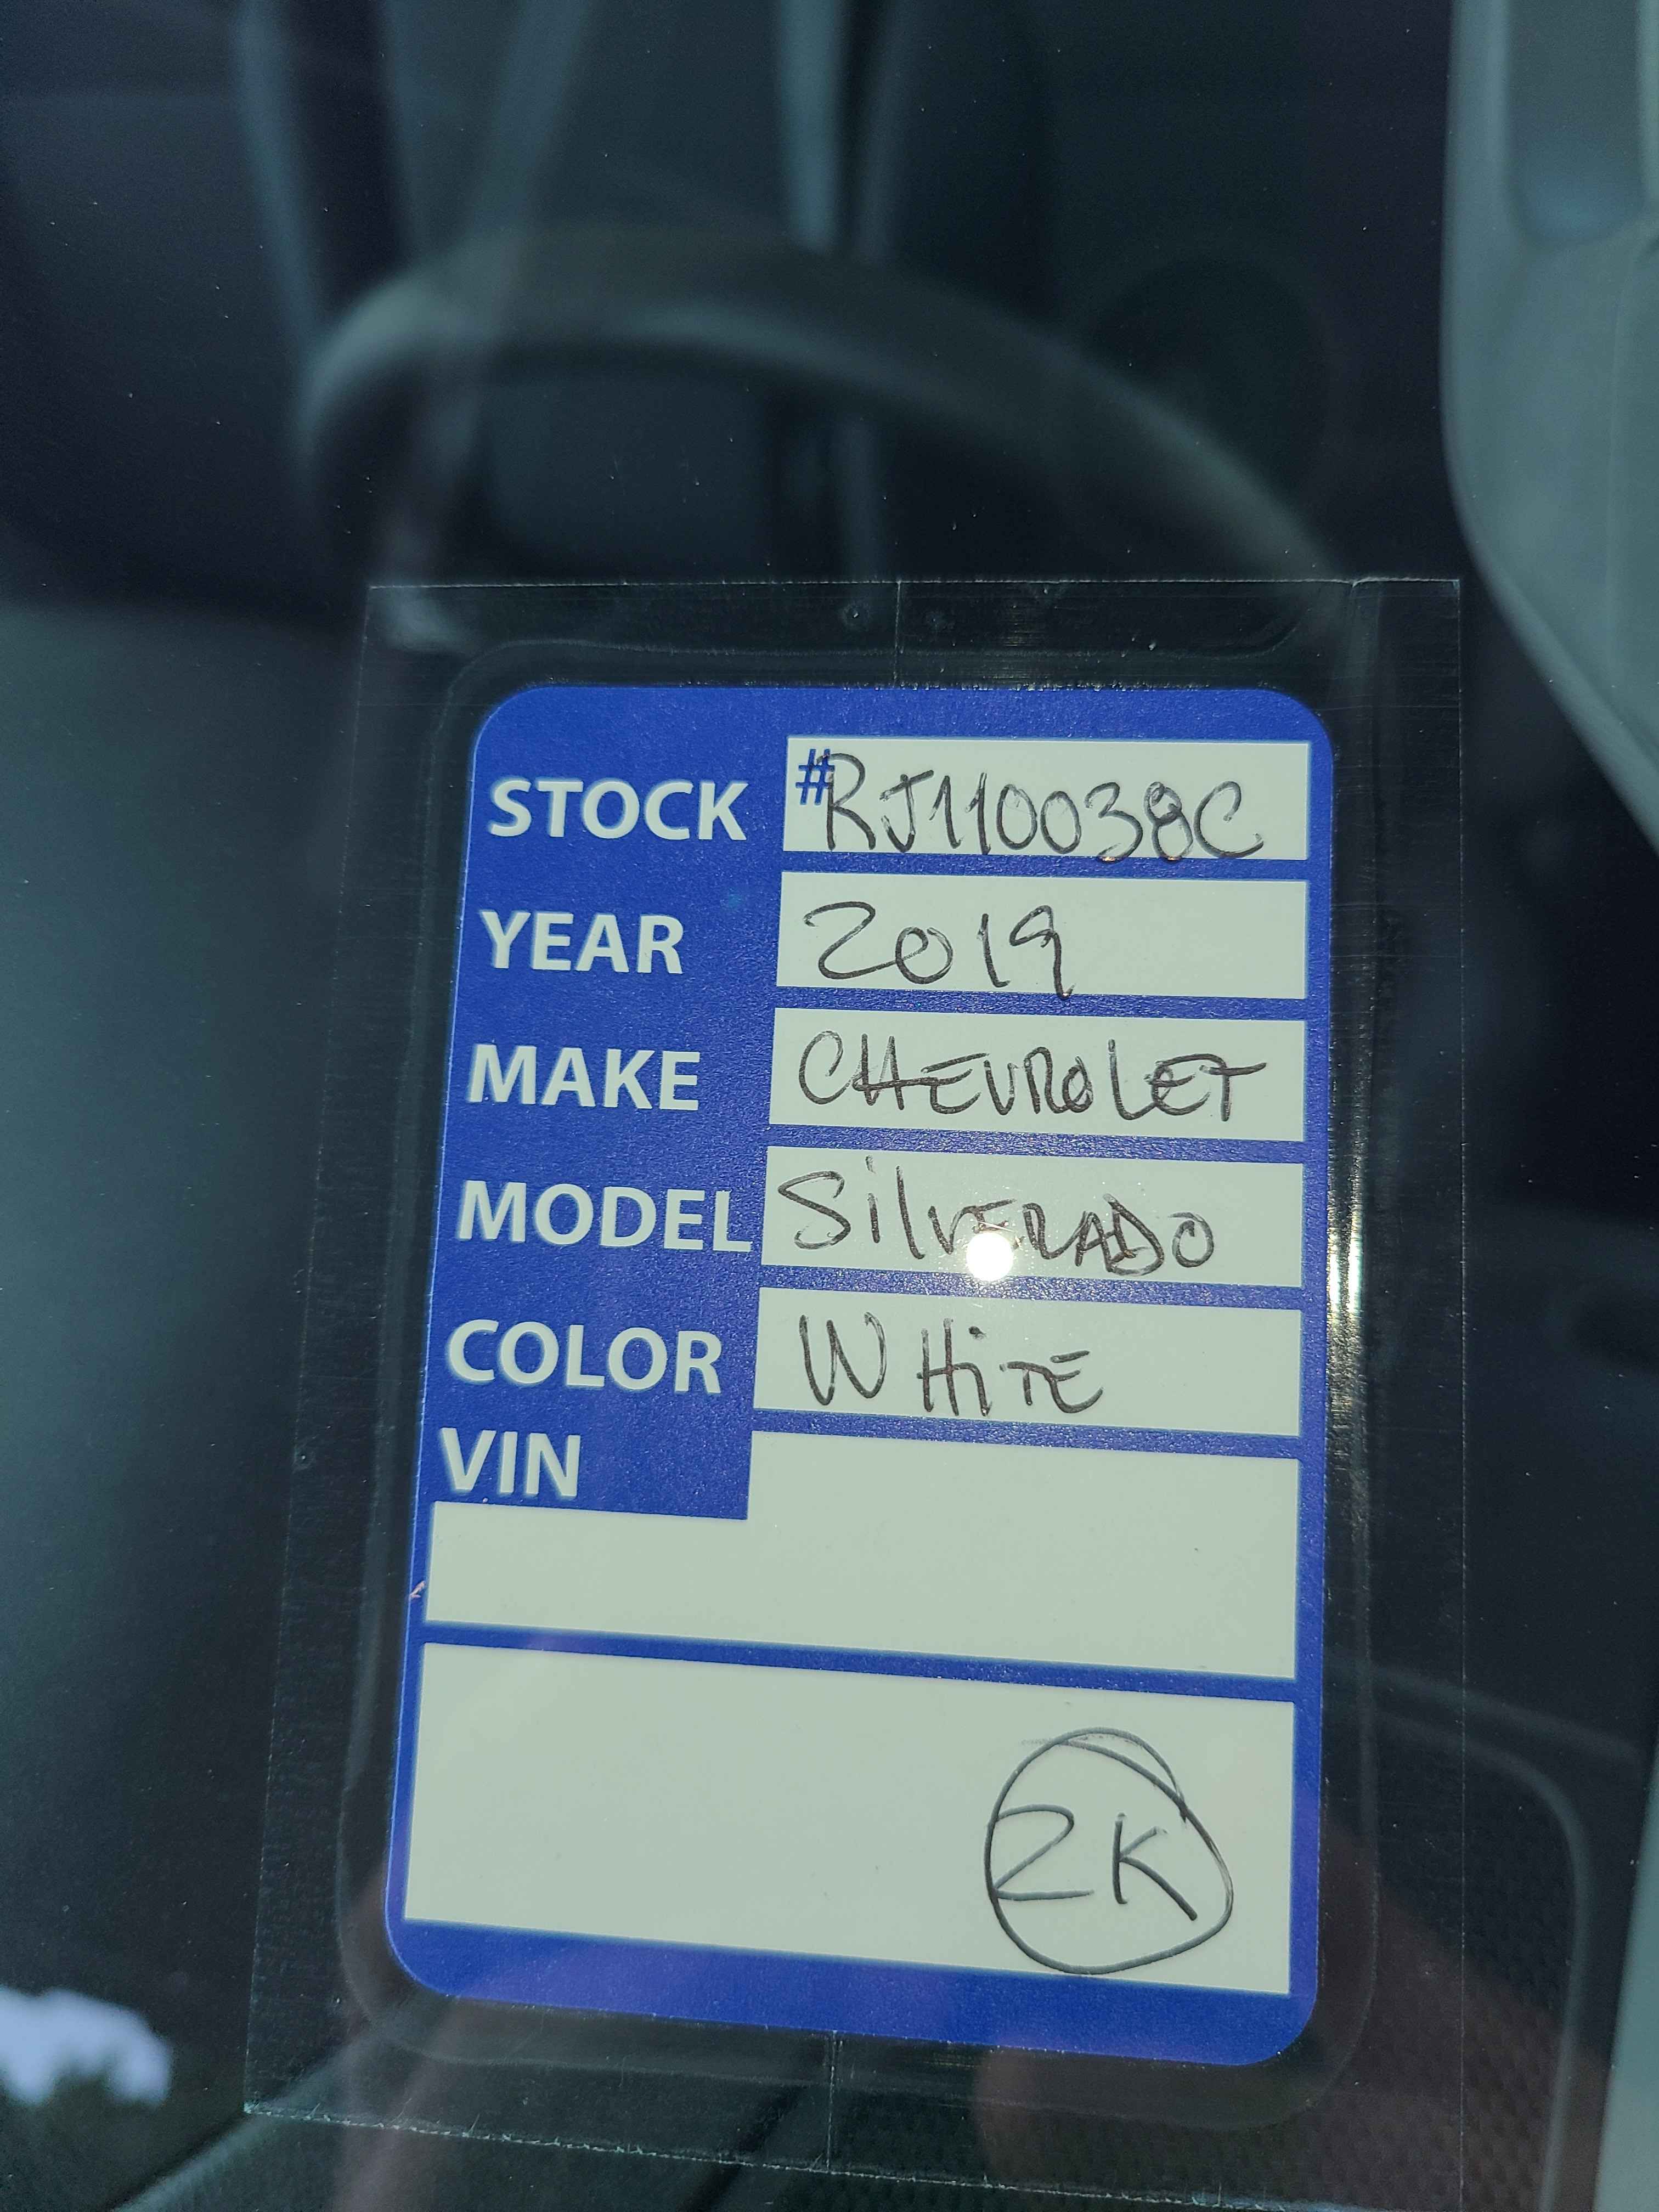 STOCK #RJ110038C
YEAR 2019
MAKE CHEVROLET
MODEL SilVERADO
COLOR WHiTE
VIN
2K